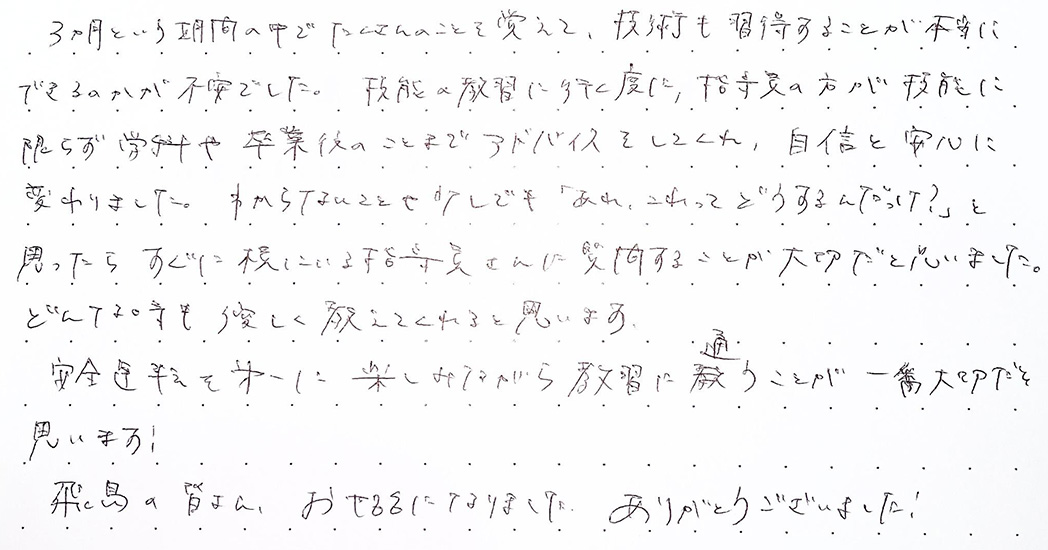 3ヵ月という期間の中でたくさんのことを覚えて、技術も習得することが本当に
できるのかが不安でした。技能の教習に行く度に、指導員の方が技能に
限らず学科や卒業後のことまでアドバイスをしてくれ、自信と安心に
変わりました。わからないことや少しでも「あれ、これってどうするんだっけ?」と
思ったらすぐに横にいる指導員さんに質問することが大切だと思いました。
どんな時も優しく教えてくれると思います。
通
安全運転を第一に楽しみながら教習に教うことが一番大切だと
思います!
飛鳥の皆さん、お世話になりました。ありがとうございました!